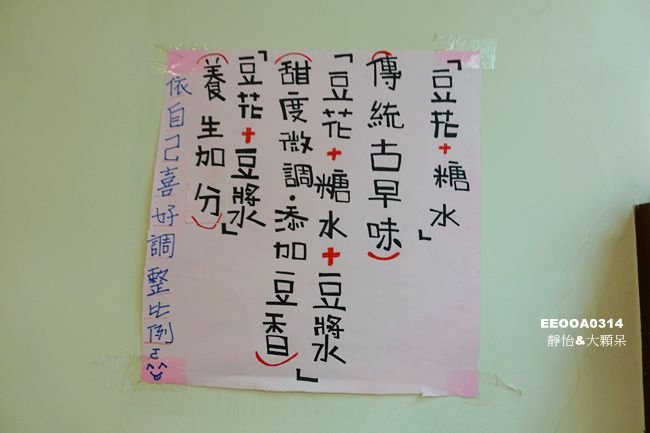 「豆花+糖水」
(傳統古早味)
「豆花+糖水+豆漿水」
(甜度微調·添加豆香)
「豆花+豆漿水」
(養生加分)
依自己喜好調整比例
EEOOA0314
靜怡&大顆呆